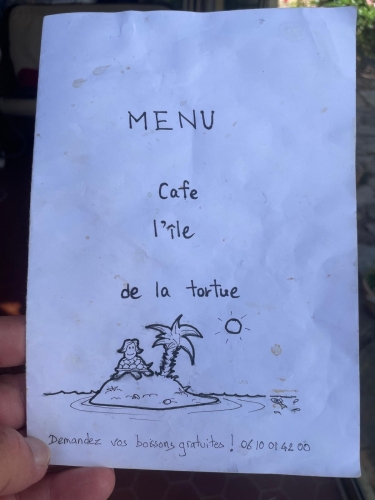 MENU
Cafe
l'île
de la tortue
Demandez vos boissons gratuites ! 06 10 01 42 00